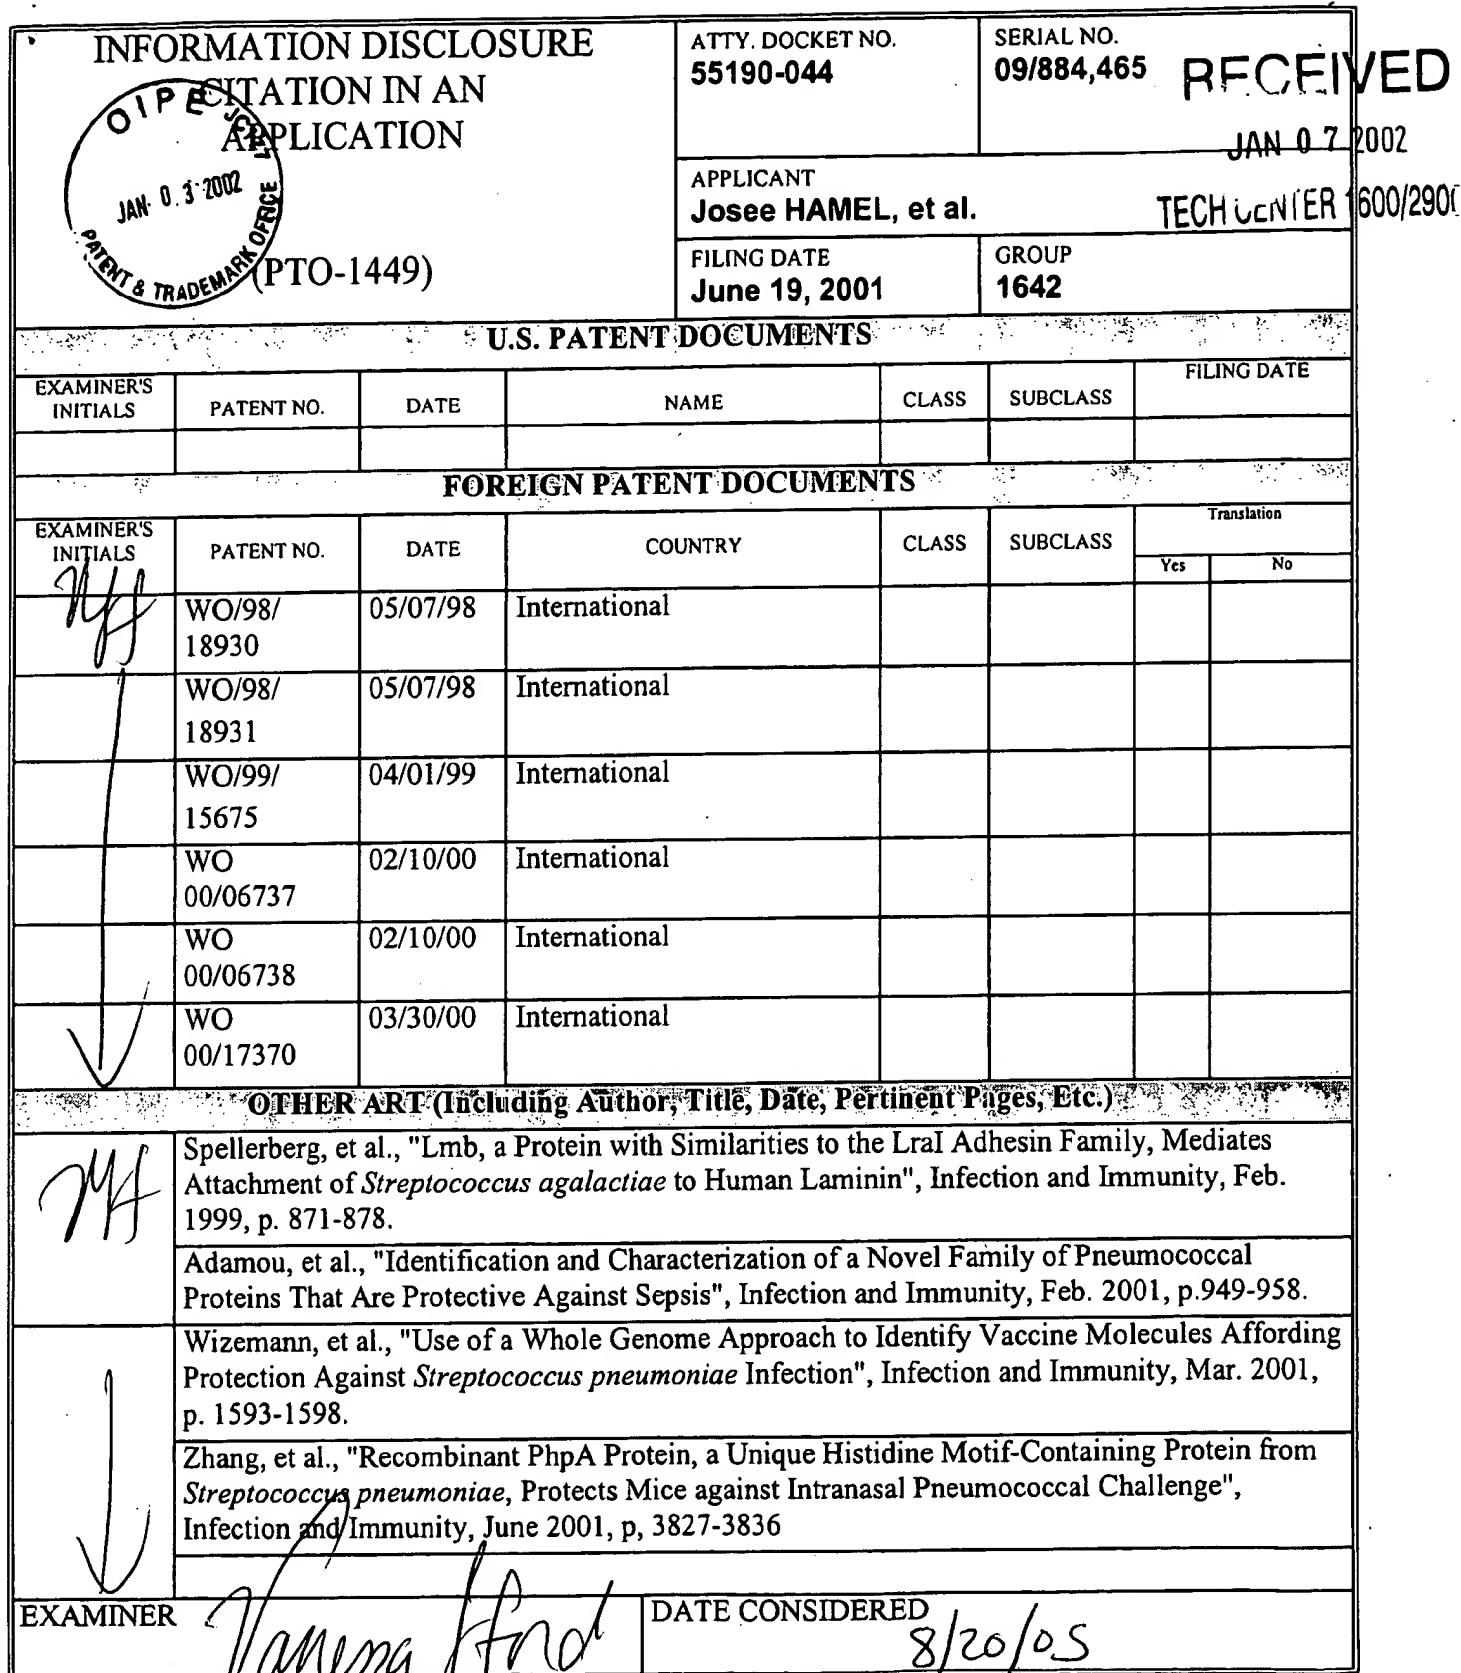 INFORMATION DISCLOSURE
CITATION IN AN
APPLICATION
(PTO-1449)
OIPE
JAN 03 2002
PATENT & TRADEMARK OFFICE
ATTY. DOCKET NO.
55190-044
SERIAL NO.
09/884,465
RECEIVED
JAN 07 2002
TECH CENTER 1600/2900
APPLICANT
Josee HAMEL, et al.
FILING DATE
June 19, 2001
GROUP
1642
U.S. PATENT DOCUMENTS
EXAMINER'S INITIALS PATENT NO. DATE NAME CLASS SUBCLASS FILING DATE
FOREIGN PATENT DOCUMENTS
EXAMINER'S INITIALS PATENT NO. DATE COUNTRY CLASS SUBCLASS Translation
Yes No
WO/98/ 05/07/98 International
18930
WO/98/ 05/07/98 International
18931
WO/99/ 04/01/99 International
15675
WO 02/10/00 International
00/06737
WO 02/10/00 International
00/06738
WO 03/30/00 International
00/17370
OTHER ART (Including Author, Title, Date, Pertinent Pages, Etc.)
Spellerberg, et al., "Lmb, a Protein with Similarities to the LraI Adhesin Family, Mediates
Attachment of Streptococcus agalactiae to Human Laminin", Infection and Immunity, Feb.
1999, p. 871-878.
Adamou, et al., "Identification and Characterization of a Novel Family of Pneumococcal
Proteins That Are Protective Against Sepsis", Infection and Immunity, Feb. 2001, p.949-958.
Wizemann, et al., "Use of a Whole Genome Approach to Identify Vaccine Molecules Affording
Protection Against Streptococcus pneumoniae Infection", Infection and Immunity, Mar. 2001,
p. 1593-1598.
Zhang, et al., "Recombinant PhpA Protein, a Unique Histidine Motif-Containing Protein from
Streptococcus pneumoniae, Protects Mice against Intranasal Pneumococcal Challenge",
Infection and Immunity, June 2001, p, 3827-3836
EXAMINER
DATE CONSIDERED
8/20/05